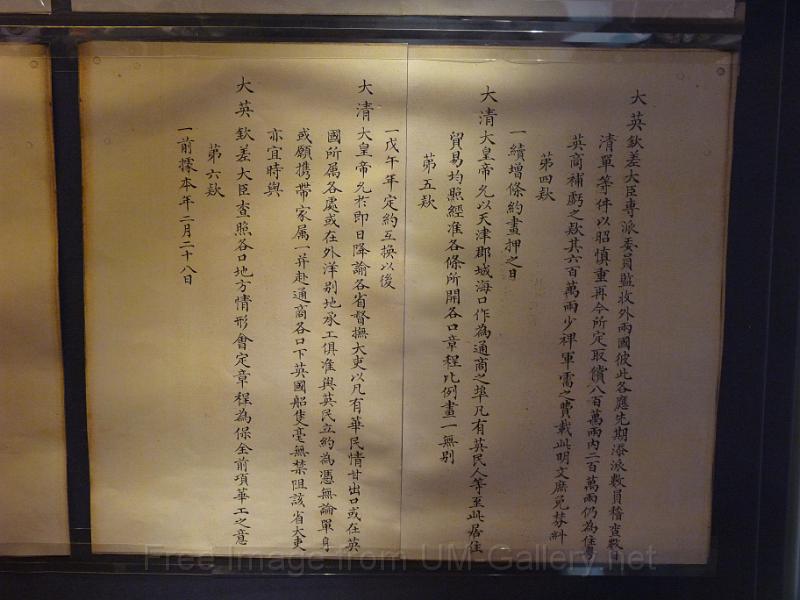 大英欽差大臣專派委員監收外兩國彼此各應先期添派數員稽查數
清單等件以昭慎重再今所定取償八百萬兩內二百萬兩仍為住粵
英商補虧之款其六百萬兩少裨軍需之費載此明文庶免棼糾
第四款
一續增條約畫押之日
大清大皇帝允以天津郡城海口作為通商之埠凡有英民人等至此居住
貿易均照經准各條所開各口章程比例畫一無別
第五款
一戊午年定約互換以後
大清大皇帝允於即日降諭各省督撫大吏以凡有華民情甘出口或在英
國所屬各處或在外洋別地承工俱准與英民立約為憑無論單身
或願攜帶家屬一并赴通商各口下英國船隻毫無禁阻該省大吏
亦宜時與
大英欽差大臣查照各口地方情形會定章程為保全前項華工之意
第六款
一前據本年二月二十八日
Free Image from UM-Gallery.net